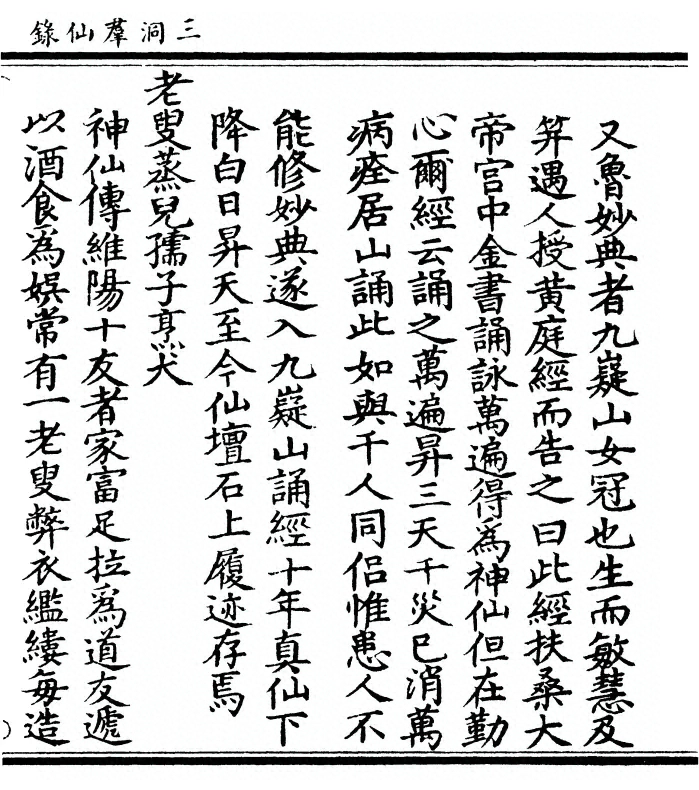 三洞羣仙錄
又魯妙典者九嶷山女冠也生而敏慧及
笄遇人授黄庭經而告之曰此經扶桑大
帝宫中金書誦詠萬遍得為神仙但在勤
心爾經云誦之萬遍昇三天千災已消萬
病痊居山誦此如與千人同侣惟患人不
能修妙典遂入九嶷山誦經十年真仙下
降白日昇天至今仙壇石上履迹存焉
老叟蒸兒孺子烹犬
神仙傳維陽十友者家富足拉為道友遞
以酒食為娯常有一老叟弊衣繿縷每造